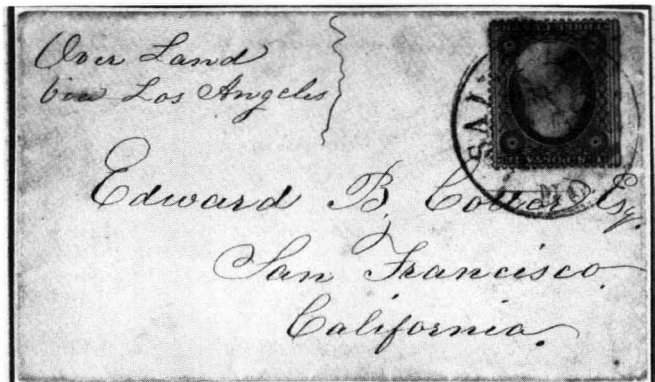 Over Land
via Los Angeles
SAL
Edward B. Esq.
San Francisco
California.